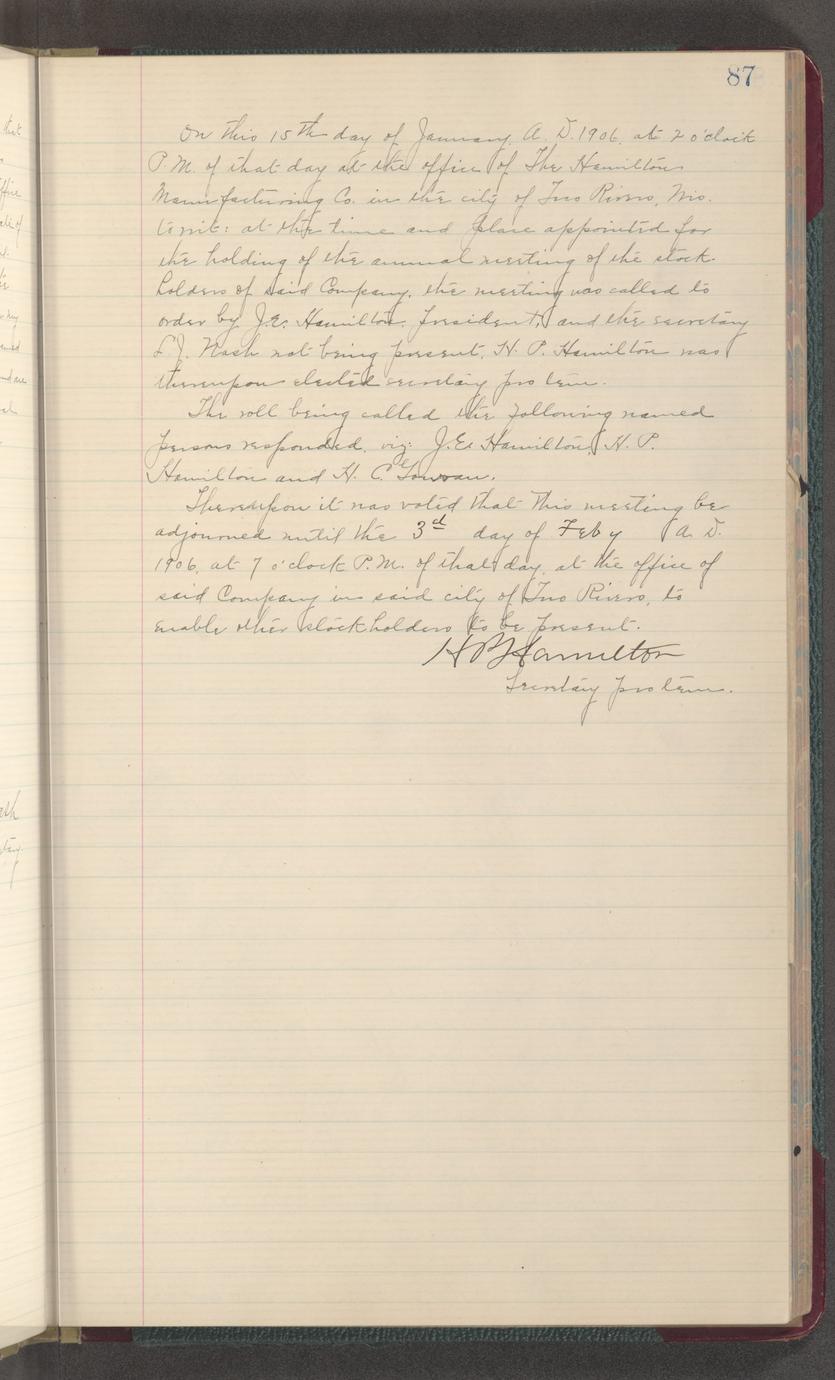 87
On this 15th day of January, A. D. 1906, at 2 o'clock
P. M. of that day at the office of The Hamilton
Manufacturing Co. in the city of Two Rivers, Wis.
towit: at the time and place appointed for
the holding of the annual meeting of the stock-
holders of said Company, the meeting was called to
order by J. E. Hamilton, President, and the secretary
L. J. Nash not being present, H. P. Hamilton was
thereupon elected secretary pro tem.
The roll being called the following named
persons responded, viz: J. E. Hamilton, H. P.
Hamilton and H. C. Gowran.
Thereupon it was voted that this meeting be
adjourned until the 3rd day of Feby A. D.
1906, at 7 o'clock P. M. of that day, at the office of
said Company in said city of Two Rivers, to
enable other stockholders to be present.
H P Hamilton
Secretary pro tem.